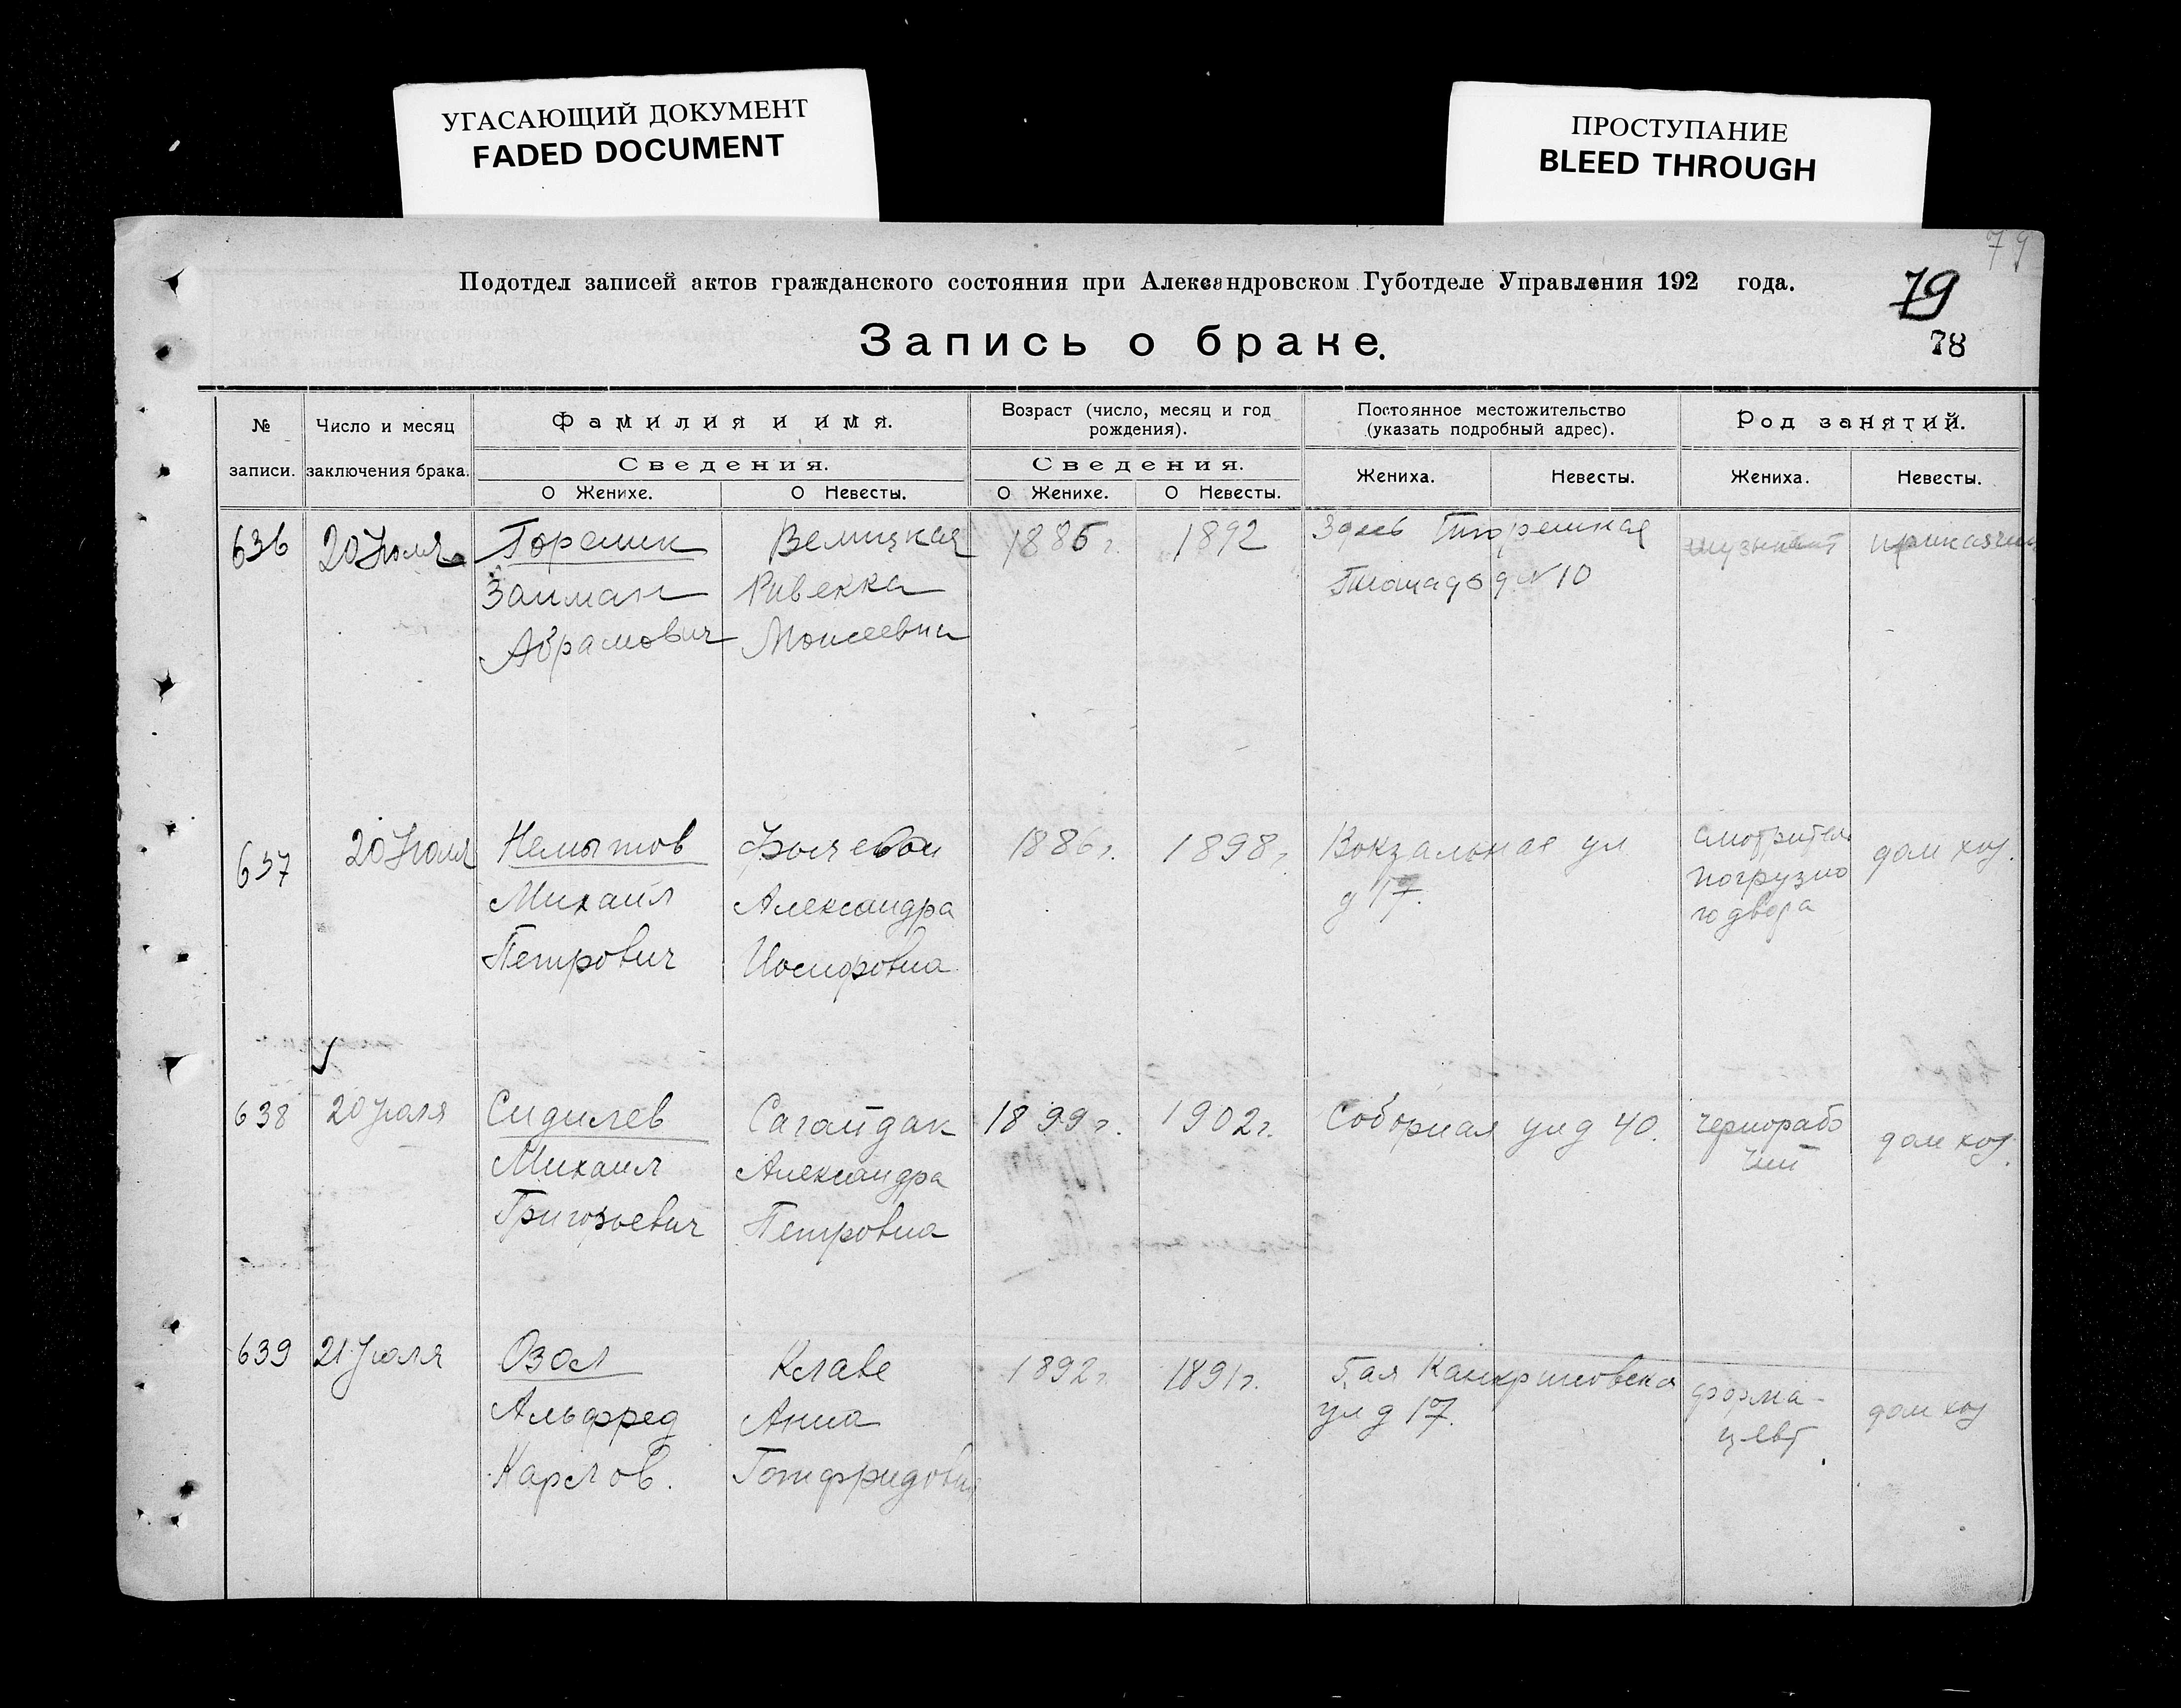 УГАСАЮЩИЙ ДОКУМЕНТ
FADED DOCUMENT
ПРОСТУПАНИЕ
BLEED THROUGH
79
Подотдел записей актов гражданского состояния при Александровском Губотделе Управления 192 года.
79
Запись о браке.
78
№ записи.
Число и месяц заключения брака.
Фамилия и имя.
Сведения.
О Женихе. О Невесты.
Возраст (число, месяц и год
рождения).
Сведения.
О Женихе. О Невесты.
Постоянное местожительство
(указать подробный адрес).
Жениха. Невесты.
Род занятий.
Жениха. Невесты.
636 20 Июля Горелик 1886 г. 1892 Здесь Тюремная
Залман Ривекка Площадь д № 10
Абрамович Моисеевна
637 20 Июля Александра 1886 г. 1898 г. Вокзальная ул смотритель дом хоз.
Михаил Иосифовна д 17. погрузно
Петрович го двора
638 20 Июля Сидилев Сагайдак 1899 г. 1902 г. Соборная ул д 40. чернорабо дом хоз.
Михаил Александра чий
Григорьевич Петровна
639 21 Июля Озол Клаве 1892 г 1891 г. форма- дом хоз
Альфред Анна ул д 17. цевт
Карлов. Готфридовна